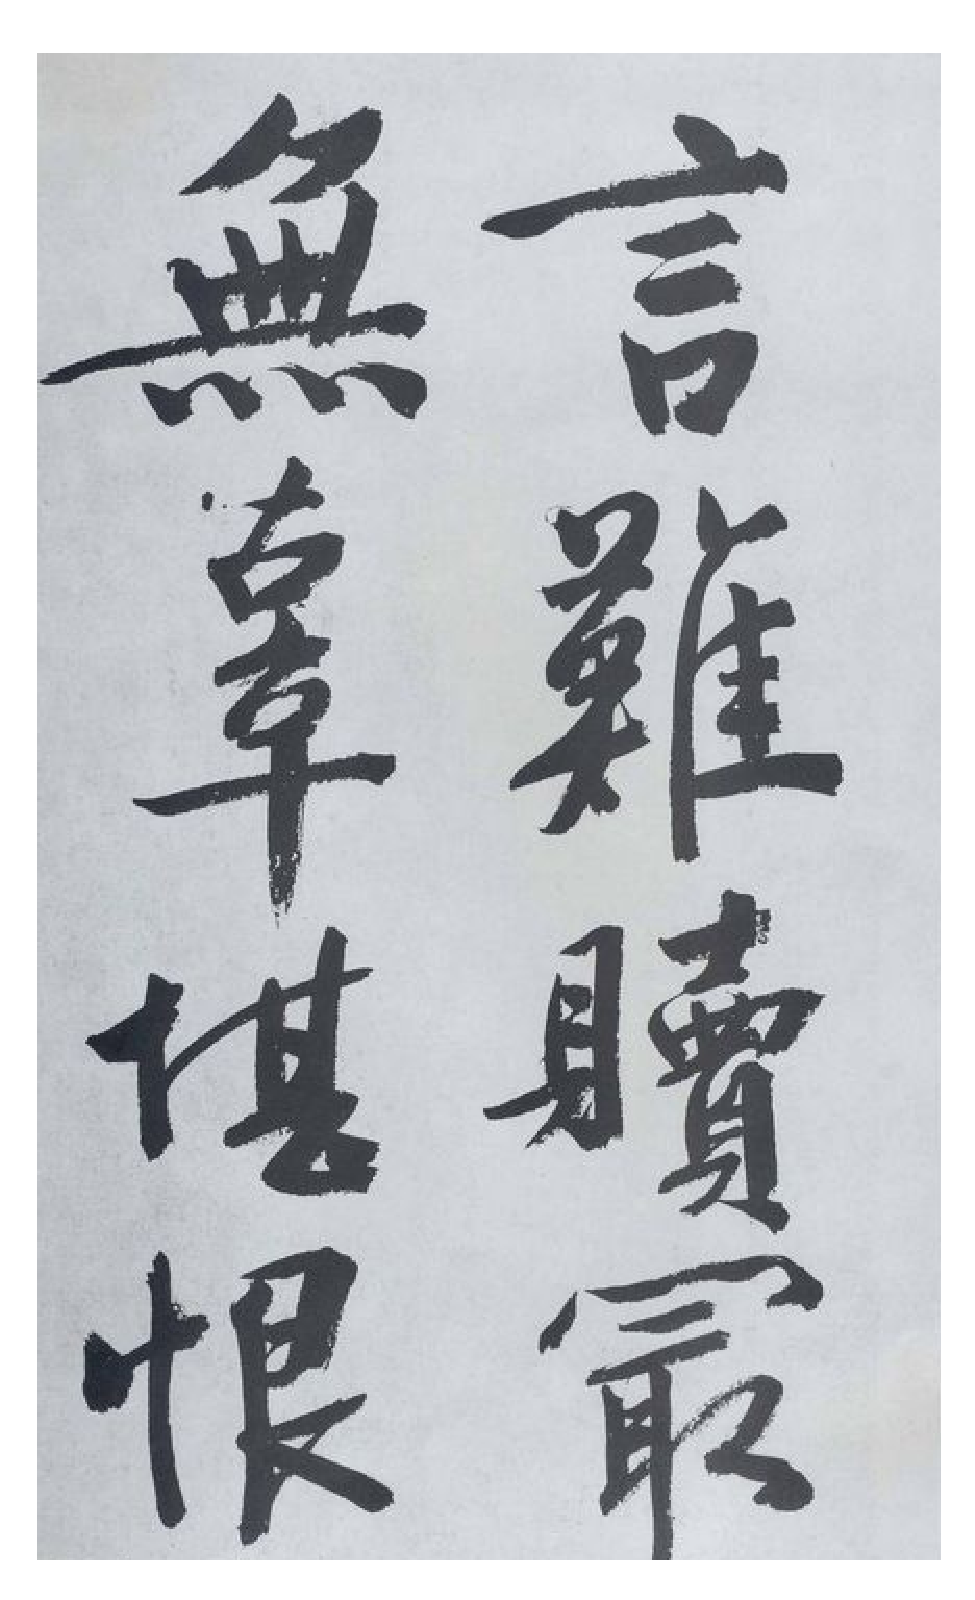 言難贖最
無辜堪恨